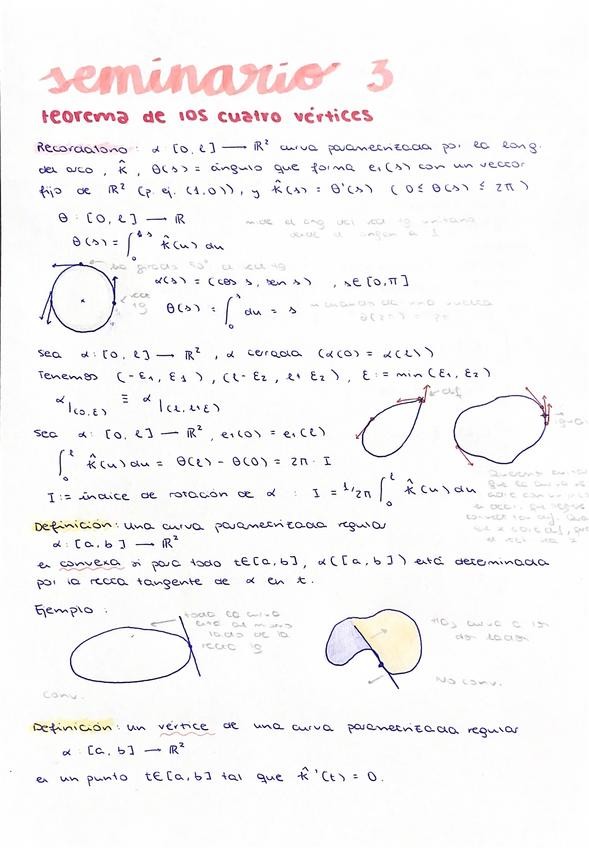 seminario 3
teorema de los cuatro vértices
Recordatorio: α [0, ℓ] → ℝ² curva parametrizada por la long.
del arco, k̂, θ(s) = ángulo que forma e₁(s) con un vector
fijo de ℝ² (p. ej. (1,0)), y k̂(s) = θ'(s) (0 ≤ θ(s) ≤ 2π)
θ : [0, ℓ] → ℝ
θ(s) = ∫₀ˢ k̂(u) du
α(s) = (cos s, sen s), s ∈ [0, π]
θ(s) = ∫₀ˢ du = s
Sea α: [0, ℓ] → ℝ², α cerrada (α(0) = α(ℓ))
Tenemos (-ε₁, ε₁), (ℓ-ε₂, ℓ+ε₂), ε := min(ε₁, ε₂)
α|(0,ε) ≡ α|(ℓ,ℓ+ε)
Sea α: [0, ℓ] → ℝ², e₁(0) = e₁(ℓ)
∫₀ˡ k̂(u) du = θ(ℓ) - θ(0) = 2π · I
I := índice de rotación de α : I = 1/2π ∫₀ˡ k̂(u) du
Definición: una curva parametrizada regular
α: [a, b] → ℝ²
es convexa si para todo t∈[a,b], α([a,b]) está determinada
por la recta tangente de α en t.
Ejemplo:
toda la curva
está al mismo
lado de la
recta tg
Hay curva a los
dos lados
conv.
No conv.
Definición: un vértice de una curva parametrizada regular
α : [a, b] → ℝ²
es un punto t∈[a,b] tal que k̂'(t) = 0.